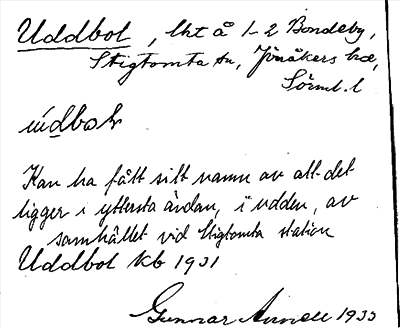 Uddbol, lht å 1-2 Bondeby,
Stigtomta sn, Jönåkers hd,
Sörml. l
údboḥ
Kan ha fått sitt namn av att det
ligger i yttersta ändan, i udden, av
samhället vid Stigtomta station
Uddbol kb 1931
Gunnar Annell 1933